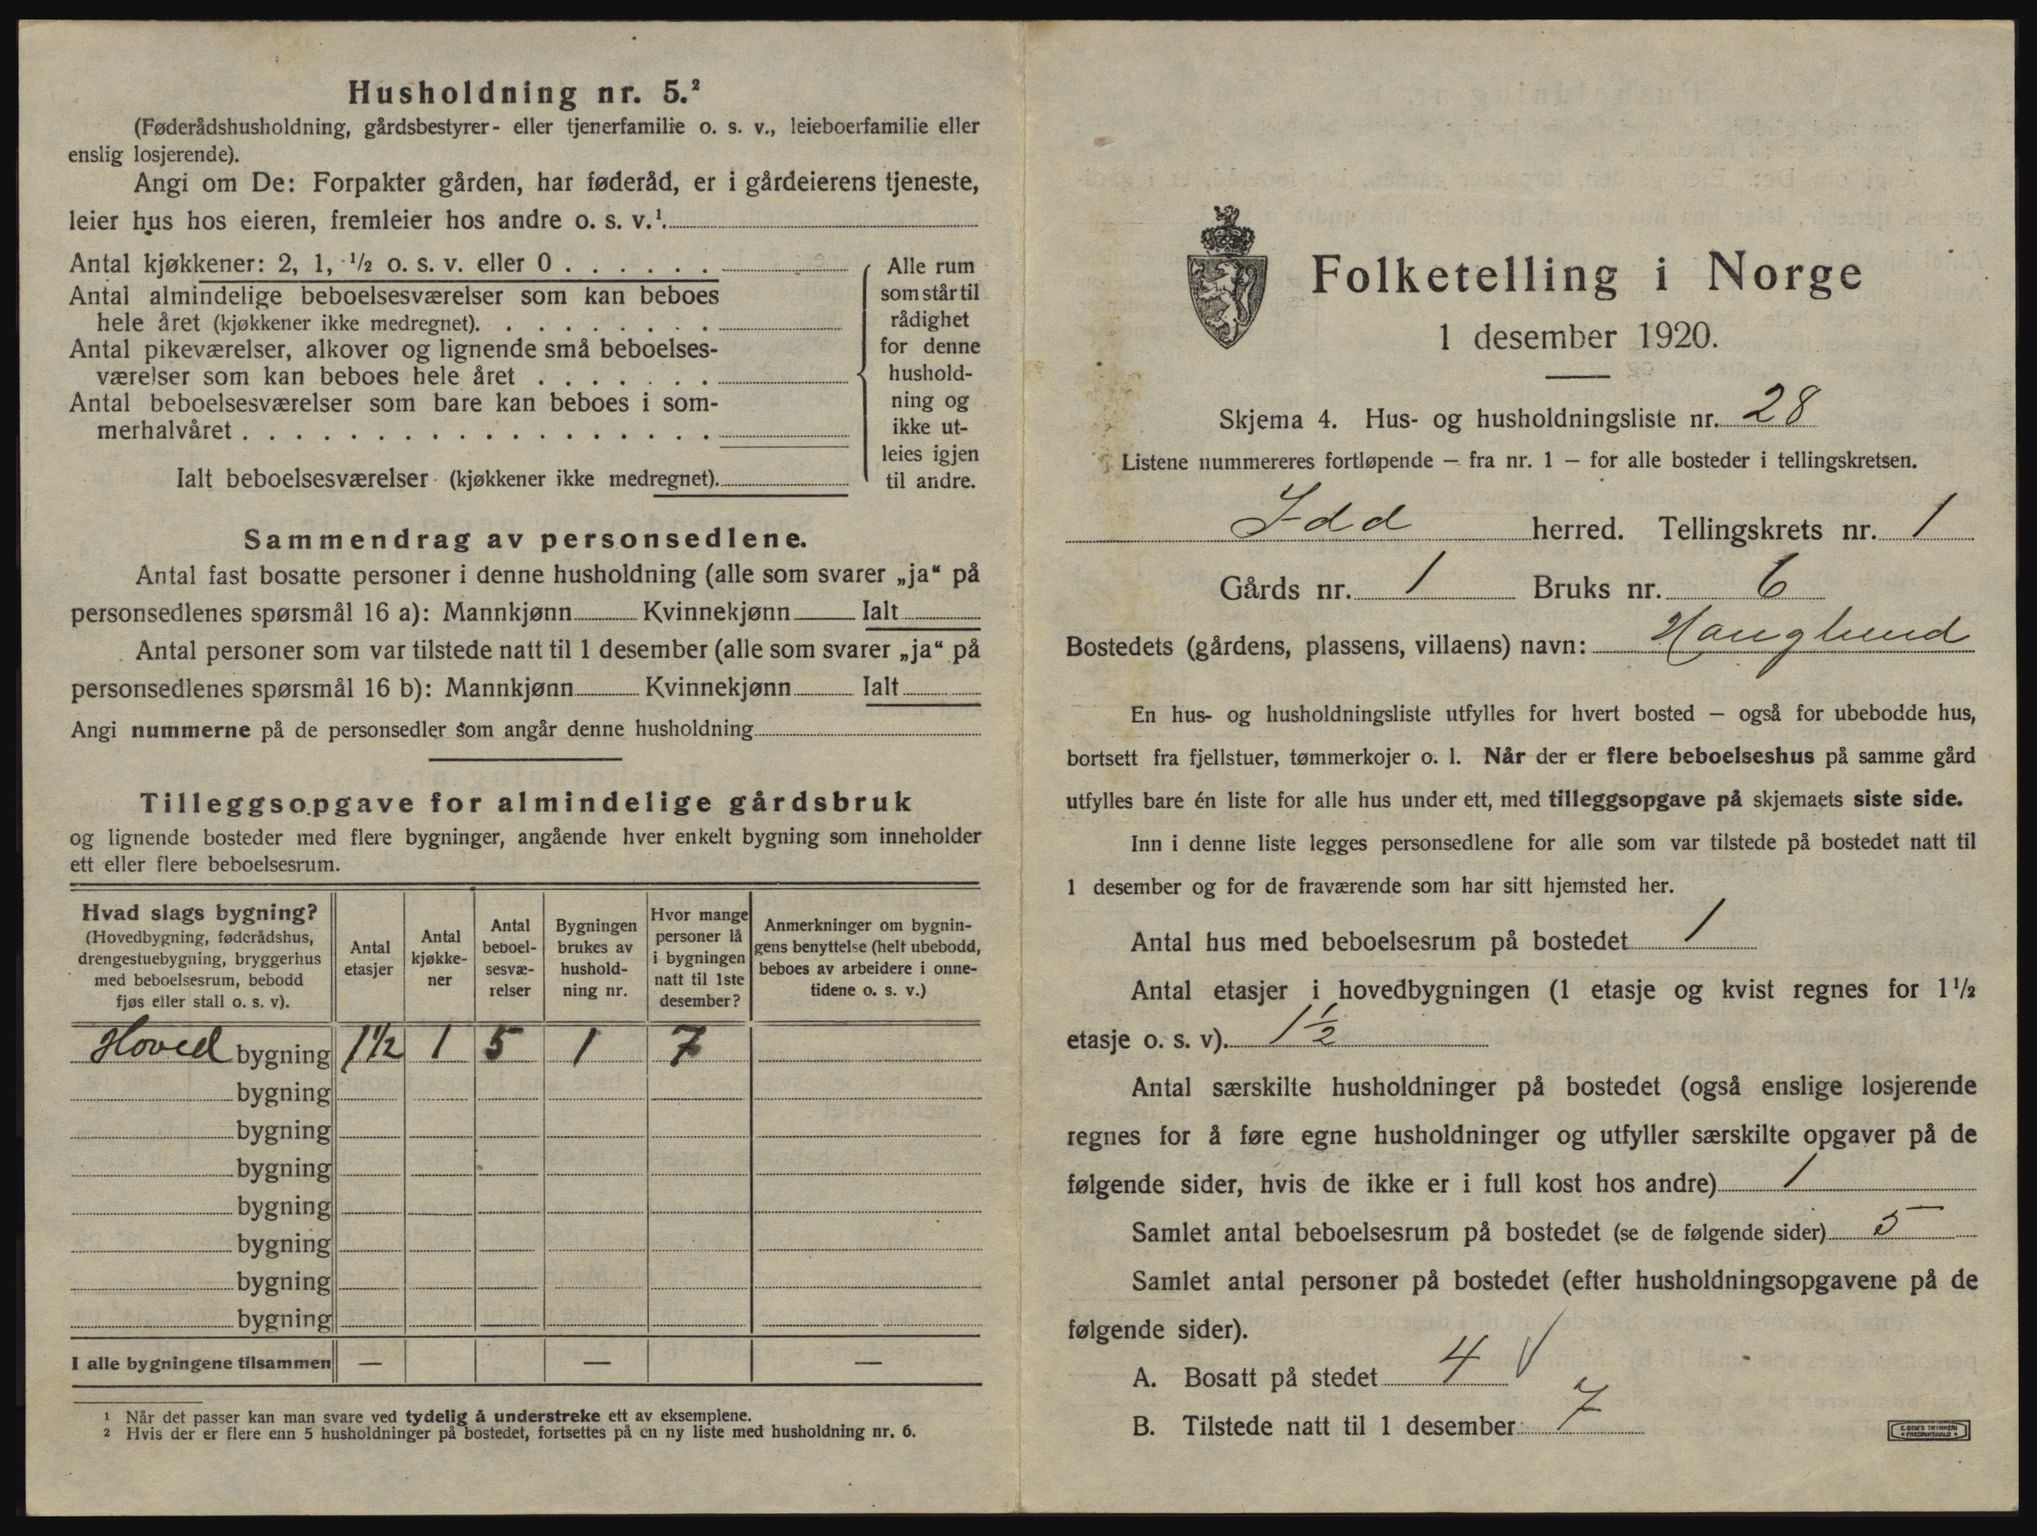 Husholdning nr. 5.²
(Føderådshusholdning, gårdsbestyrer- eller tjenerfamilie o. s. v., leieboerfamilie eller
enslig losjerende).
Angi om De: Forpakter gården, har føderåd, er i gårdeierens tjeneste,
leier hus hos eieren, fremleier hos andre o. s. v.¹.
Antal kjøkkener: 2, 1, ½ o. s. v. eller 0 . . . . . .
Antal almindelige beboelsesværelser som kan beboes
hele året (kjøkkener ikke medregnet). . . . . . . . .
Antal pikeværelser, alkover og lignende små beboelses-
værelser som kan beboes hele året . . . . . . .
Antal beboelsesværelser som bare kan beboes i som-
merhalvåret . . . . . . . . . . . . . . . . . .
Ialt beboelsesværelser (kjøkkener ikke medregnet).
Alle rum
som står til
rådighet
for denne
hushold-
ning og
ikke ut-
leies igjen
til andre.
Sammendrag av personsedlene.
Antal fast bosatte personer i denne husholdning (alle som svarer „ja“ på
personsedlenes spørsmål 16 a): Mannkjønn Kvinnekjønn Ialt
Antal personer som var tilstede natt til 1 desember (alle som svarer „ja“ på
personsedlenes spørsmål 16 b): Mannkjønn Kvinnekjønn Ialt
Angi nummerne på de personsedler som angår denne husholdning
Tilleggsopgave for almindelige gårdsbruk
og lignende bosteder med flere bygninger, angående hver enkelt bygning som inneholder
ett eller flere beboelsesrum.
Hvad slags bygning?
(Hovedbygning, føderådshus,
drengestuebygning, bryggerhus
med beboelsesrum, bebodd
fjøs eller stall o. s. v).
Antal
etasjer
Antal
kjøkke-
ner
Antal
beboel-
sesvæ-
relser
Bygningen
brukes av
hushold-
ning nr.
Hvor mange
personer lå
i bygningen
natt til 1ste
desember?
Anmerkninger om bygnin-
gens benyttelse (helt ubebodd,
beboes av arbeidere i onne-
tidene o. s. v.)
Hoved bygning 1½ 1 5 1 7
bygning
bygning
bygning
bygning
bygning
bygning
bygning
I alle bygningene tilsammen — — —
¹ Når det passer kan man svare ved tydelig å understreke ett av eksemplene.
² Hvis der er flere enn 5 husholdninger på bostedet, fortsettes på en ny liste med husholdning nr. 6.
Folketelling i Norge
1 desember 1920.
Skjema 4. Hus- og husholdningsliste nr. 28
Listene nummereres fortløpende — fra nr. 1 — for alle bosteder i tellingskretsen.
Idd herred. Tellingskrets nr. 1
Gårds nr. 1 Bruks nr. 6
Bostedets (gårdens, plassens, villaens) navn: Hauglund
En hus- og husholdningsliste utfylles for hvert bosted — også for ubebodde hus,
bortsett fra fjellstuer, tømmerkojer o. l. Når der er flere beboelseshus på samme gård
utfylles bare én liste for alle hus under ett, med tilleggsopgave på skjemaets siste side.
Inn i denne liste legges personsedlene for alle som var tilstede på bostedet natt til
1 desember og for de fraværende som har sitt hjemsted her.
Antal hus med beboelsesrum på bostedet 1
Antal etasjer i hovedbygningen (1 etasje og kvist regnes for 1½
etasje o. s. v). 1½
Antal særskilte husholdninger på bostedet (også enslige losjerende
regnes for å føre egne husholdninger og utfyller særskilte opgaver på de
følgende sider, hvis de ikke er i full kost hos andre) 1
Samlet antal beboelsesrum på bostedet (se de følgende sider) 5
Samlet antal personer på bostedet (efter husholdningsopgavene på de
følgende sider).
A. Bosatt på stedet 4 √
B. Tilstede natt til 1 desember 7